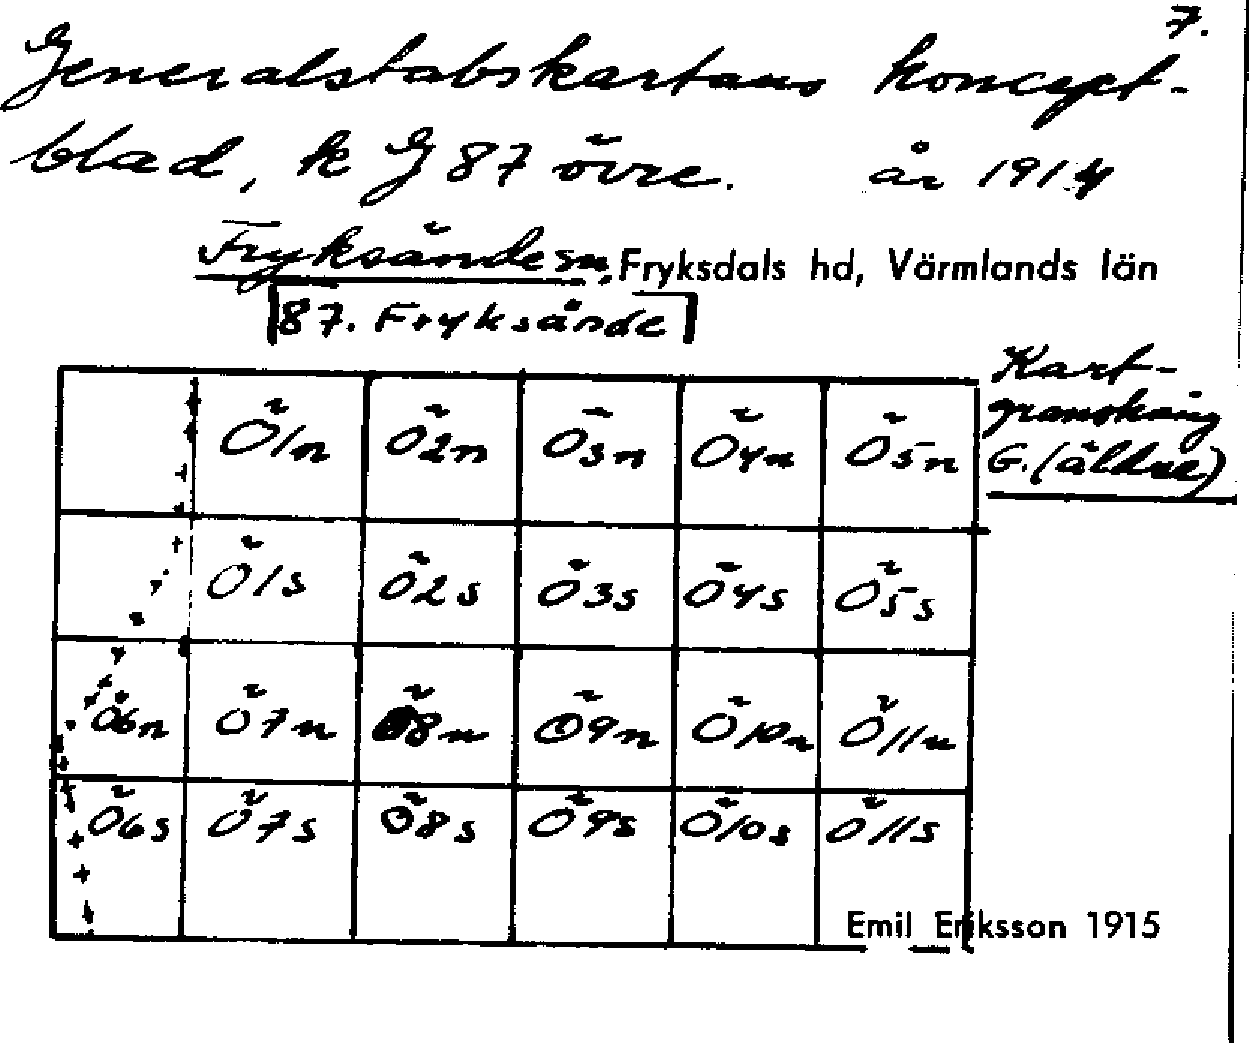 7.
Generalstabskartans koncept-
blad, k G 87 övre. år 1914
Fryksände sn, Fryksdals hd, Värmlands län
87. Fryksände
Kart-
granskning
G. (äldre)
Ö1n Ö2n Ö3n Ö4n Ö5n
Ö1s Ö2s Ö3s Ö4s Ö5s
Ö6n Ö7n Ö8n Ö9n Ö10n Ö11n
Ö6s Ö7s Ö8s Ö9s Ö10s Ö11s
Emil Eriksson 1915